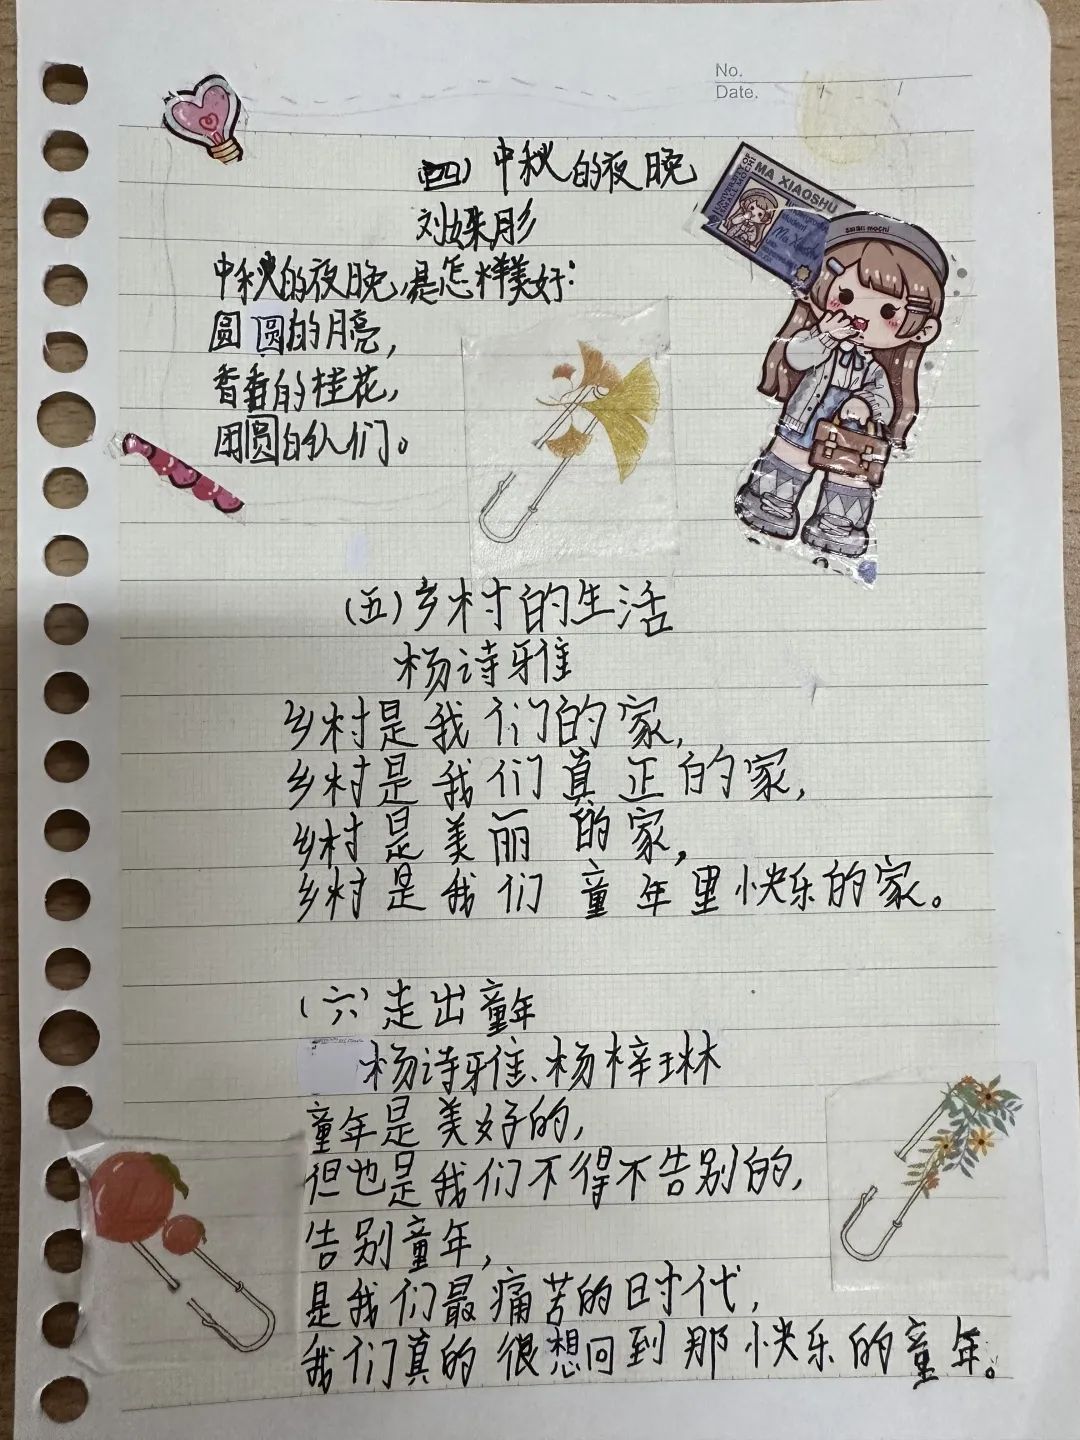 No.
Date.
(四)中秋的夜晚
刘姝彤
中秋的夜晚,是怎样美好:
圆圆的月亮,
香香的桂花,
团圆的人们。
MA XIAOSHU
small mochi
(五)乡村的生活
杨诗雅
乡村是我们的家,
乡村是我们真正的家,
乡村是美丽的家,
乡村是我们童年里快乐的家。
(六)走出童年
杨诗雅、杨梓琳
童年是美好的,
但也是我们不得不告别的,
告别童年,
是我们最痛苦的时代,
我们真的很想回到那快乐的童年。